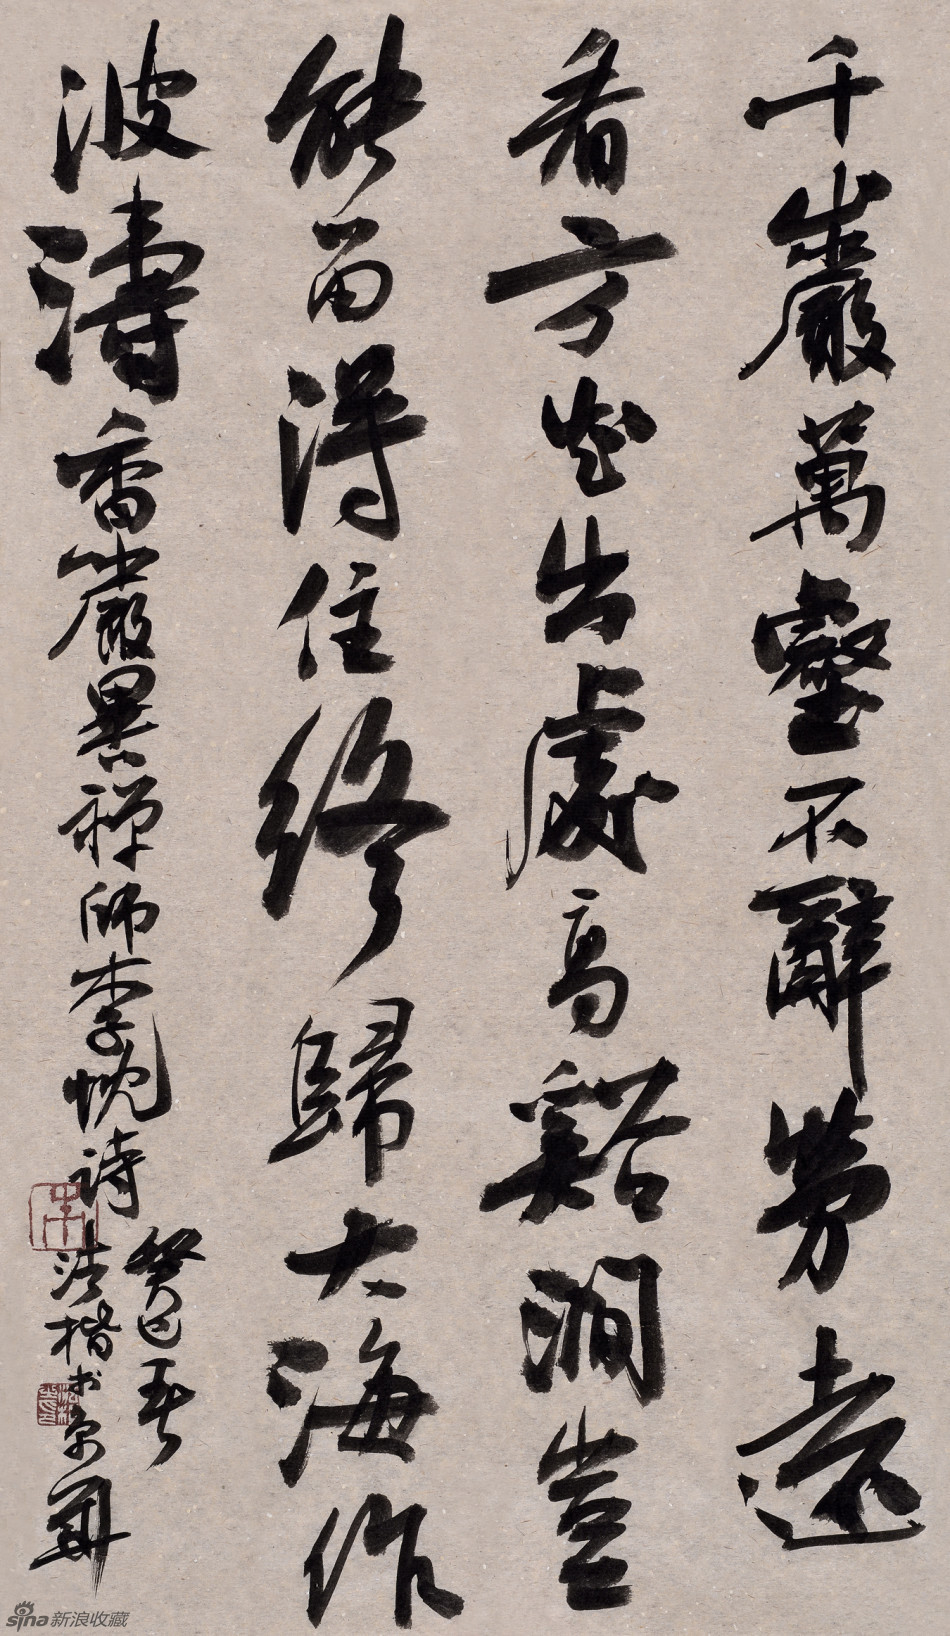 千巖萬壑不辭勞遠
看方知出處高谿澗豈
能留得住終歸大海作
波濤香嚴禪師李忱詩
癸巳春
法楷书京華
朱
sina新浪收藏